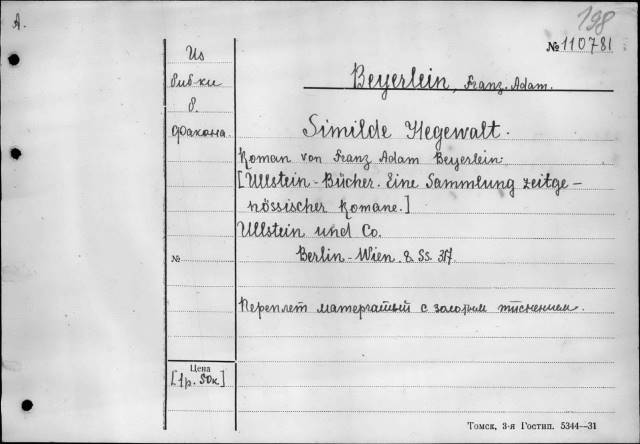 А.
198
№110781
Из
библ-ки
б.
факона.
Beyerlein, Franz. Adam.
Similde Hegewalt.
Roman von Franz Adam Beyerlein.
[Ullstein-Bücher. Eine Sammlung zeitge-
nössischer Romane.]
Ullstein und Co.
№
Berlin-Wien. 8. Ss. 317.
Переплет матерчатый с золотым тиснением.
Цена
[1р. 50к]
Томск, 3-я Гостип. 5344—31